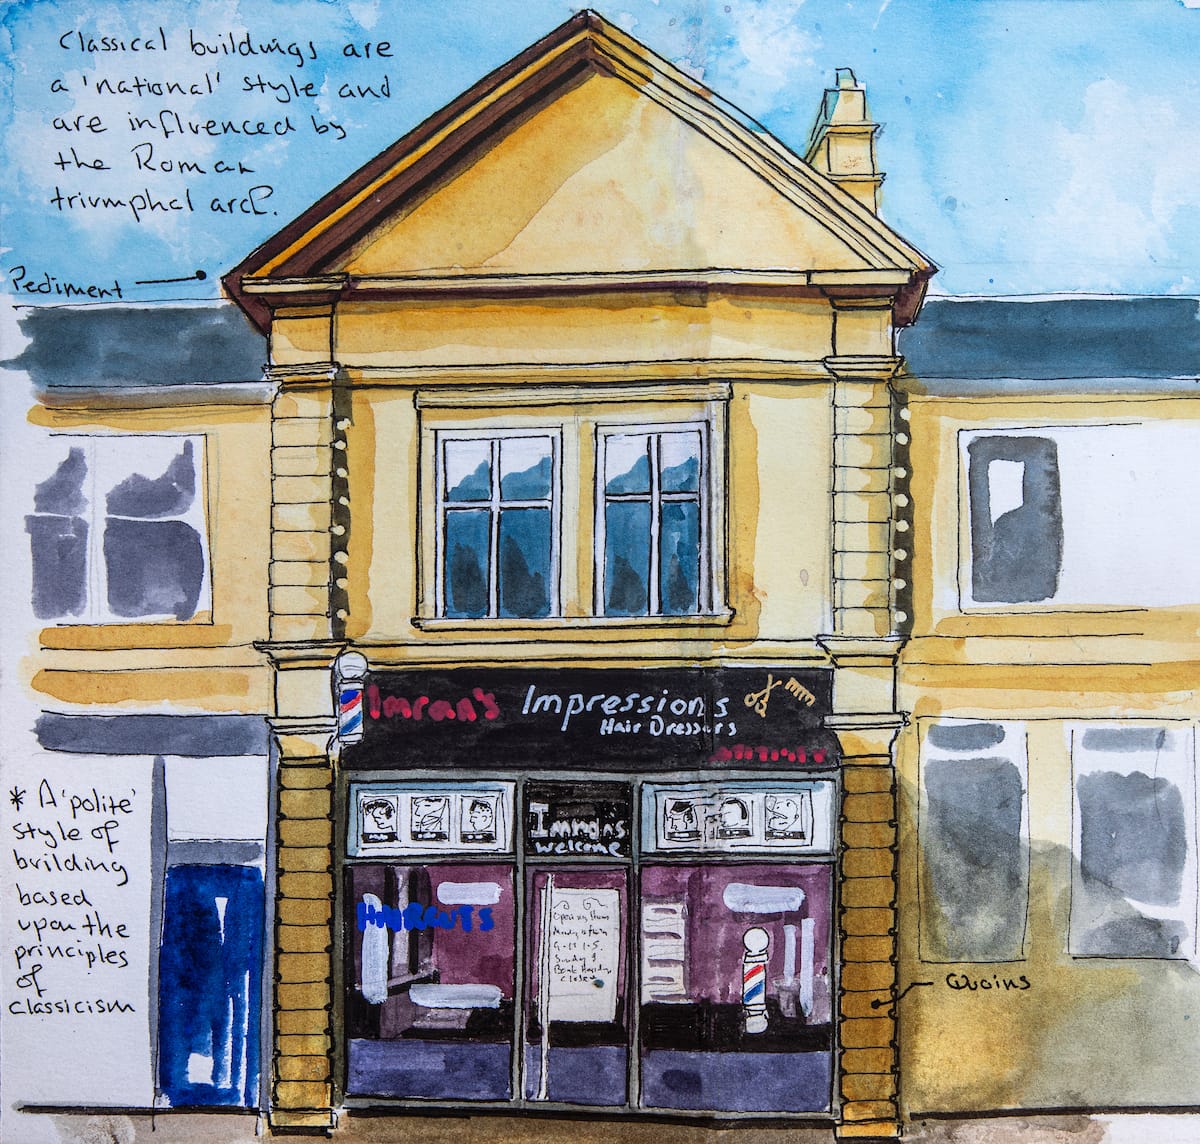 Classical buildings are
a 'national' style and
are influenced by
the Roman
triumphal arch.
Pediment
Imran's Impressions
Hair Dressers
Imrans
welcome
HAIRCUTS
Opening times
9-
1-5.
Sunday &
Bank Holiday
Closed
* A 'polite'
style of
building
based
upon the
principles
of
classicism
Quoins